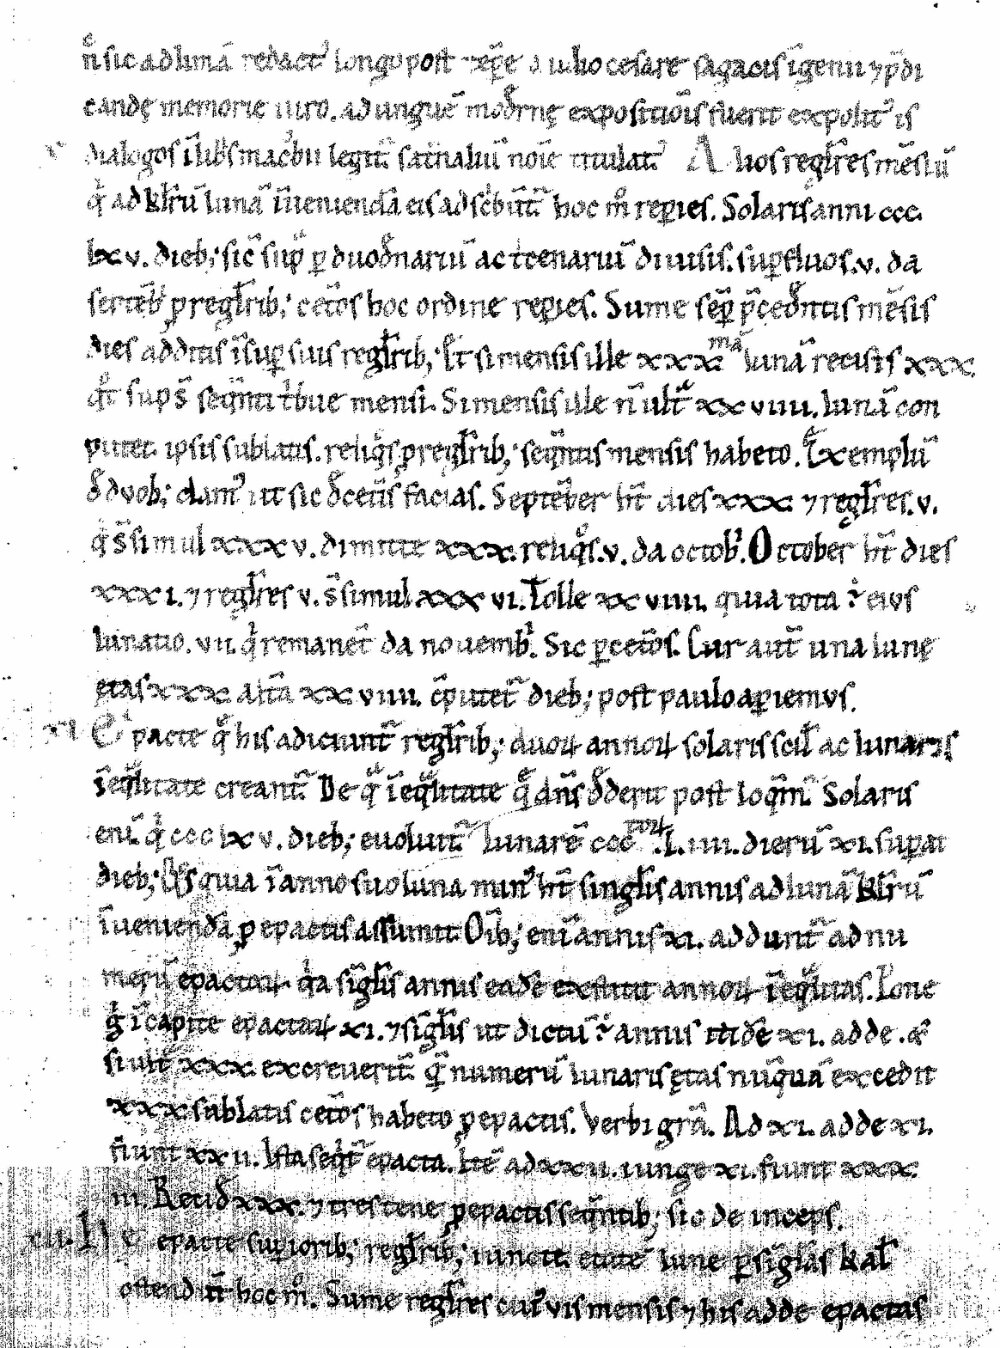 n̄ sic ad lunā redact᷒ longo post tēpe a iulio cesare sagacis īgenii ⁊ p̄di
candę memorie uiro. ad unguē mod̄nę expositiōis fuerit expolit᷒ is
dialogos ī lib̄s macb̄ii legit᷑ sat̄naliū noīe titulat᷒ Alios reḡlres m̄siū
q̄ ad kl̄rū lunā īueniendā eis adsc̄bunt᷑ hoc m̊ repies. Solaris anni ccc.
lxv. dieb; sic̄ sup̄ p duod̄nariū ac tcenariū diuisis. supfluos .v. da
septēb̄ p reḡlrib; cet̄os hoc ordine repies. Sume sēp p̄ced̄ntis m̄sis
dies additis īsup suis reḡlrib; Et si mensis ille xxx.mā lunā recisis xxx.
qd̄ sup̄ ē seq̄nti t̄bue mensi. Si mensis ille n̄ ult̄ xxviiii. lunā con
putet. ipsis sublatis. reliq̄s p reḡlrib; seq̄ntis mensis habeto. Exemplū
d̄ duob; dam᷒ ut sic d̄ cet̄is facias. September ht̄ dies xxx. ⁊ reḡlres .v.
q̄ s̄ simul xxxv. dimitte xxx. reliq̊s .v. da octob̄. October ht̄ dies
xxxi. ⁊ reḡlres v. s̄ simul xxxvi. Tolle xxviiii. quia tota ē eius
lunatio. vii. q̄ remanēt da nouemb̄. Sic p cet̄os. Cur aut̄ una lunę
ętas xxx. alt̄a xxviiii. c̄putet᷑ dieb; post paulo apiemus.
xi Epacte q̄ his adiciunt᷑ reḡlrib; duoꝝ annoꝝ solaris scil̄ ac lunaris
īeq̄litate creant᷑. De q̄ īeq̄litate q̄ dn̄s d̄derit post loq̄m᷑. Solaris
eni᷑ q̄ ccclxv. dieb; euoluit᷑ lunarē cccᵗᵒʳ. L.iiii. dierū xi. supat
dieb; Has quia ī anno suo luna min᷒ ht̄ singl̄is annis ad lunā kl̄rū
īueniendā p epactis assumit. Oīb; enī annis xi. addunt᷑ ad nu
merū epactaꝝ. q̄a sīgl̄is annis eadē exstitit annoꝝ īeq̄litas. Pone
g̊ ī capite epactaꝝ xi. ⁊ sīgl̄is ut dictū ē annis itidē xi. adde. Qd̄
si ult̄ xxx. excreuerit. q̄ numerū lunaris ętas nūquā excedit
xxx. sublatis cet̄os habeto p epactis. Verbi gr̄a. Ad xi. adde xi.
fiunt xxii. Ista seq̄t᷑ epacta. Itē ad xxii. iunge xi. fiunt xxx
iii. Recid̄ xxx. ⁊ tres tene p epactis seq̄ntib; sic deinceps.
xii. He epacte supiorib; reḡlrib; iuncte etatē lune p sīgl̄as kal̄
ostendunt hoc m̊. Sume reḡlres cui᷒ vis mensis ⁊ his adde epactas